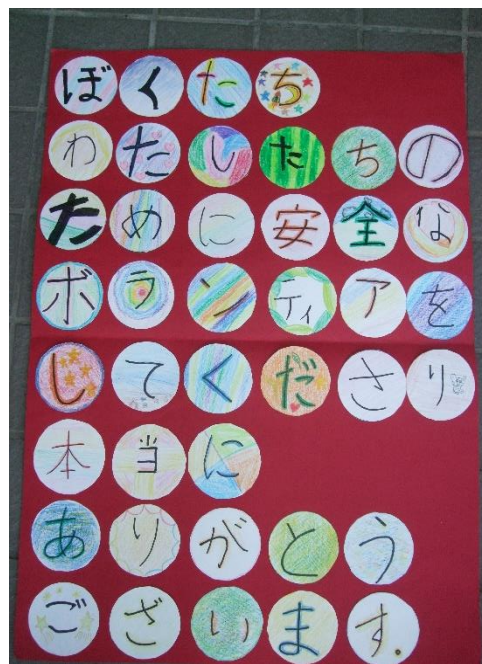 ぼくたち
わたしたちの
ために安全な
ボランティアを
してくださり
本当に
ありがとう
ございます.